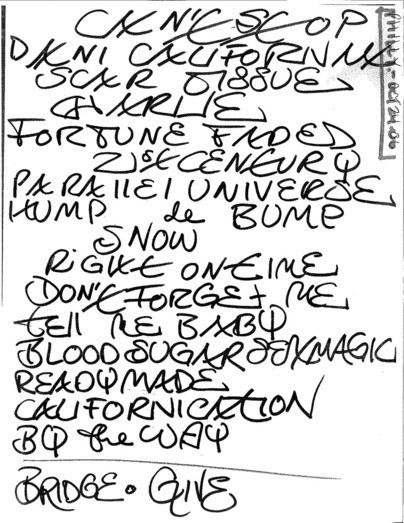 CAN'T STOP
DANI CALIFORNIA
SCAR TISSUE
CHARLIE
FORTUNE FADED
21st CENTURY
PARAllEl UNIVERSE
HUMP de BUMP
SNOW
RiGHT ON TIME
DON'T FORGET ME
tEll ME BABY
BLOOD SUGAR SEX MAGIC
READYMADE
CALIFORNICATION
BY the WAY
BRIDGE • GIVE